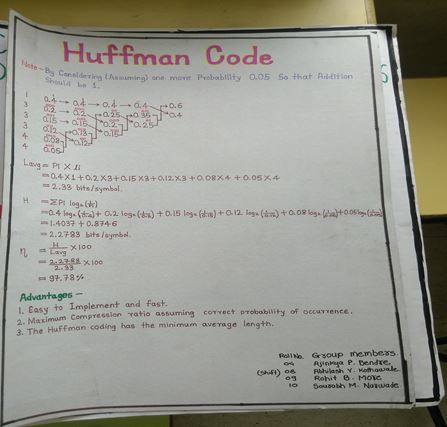 Huffman Code
Note - By Considering (Assuming) one more Probability 0.05 So that Addition
Should be 1.
1 0.4 → 0.4 → 0.4 → 0.4 0.6
3 0.2 → 0.2 0.25 0.35 0.4
3 0.15 → 0.15 0.2 0.25
3 0.12 0.13 0.15
4 0.08 0.12
4 0.05
Lavg = Pi × li
= 0.4 X 1 + 0.2 X 3 + 0.15 X 3 + 0.12 X 3 + 0.08 X 4 + 0.05 X 4
= 2.33 bits/symbol.
H = ΣPi log₂ (1/Pi)
= 0.4 log₂ (1/0.4) + 0.2 log₂ (1/0.2) + 0.15 log₂ (1/0.15) + 0.12 log₂ (1/0.12) + 0.08 log₂ (1/0.08) + 0.05 log₂ (1/0.05)
= 1.4037 + 0.8746
= 2.2783 bits/symbol.
η = H/Lavg × 100
= 2.2783/2.33 × 100
= 97.78 %
Advantages -
1. Easy to Implement and fast.
2. Maximum Compression ratio assuming correct probability of occurrence.
3. The Huffman coding has the minimum average length.
Roll No. Group members.
04 Ajinkya P. Bendre.
(Shift) 08 Abhilash Y. Kothawale
09 Rohit B. More
10 Sourabh M. Narwade